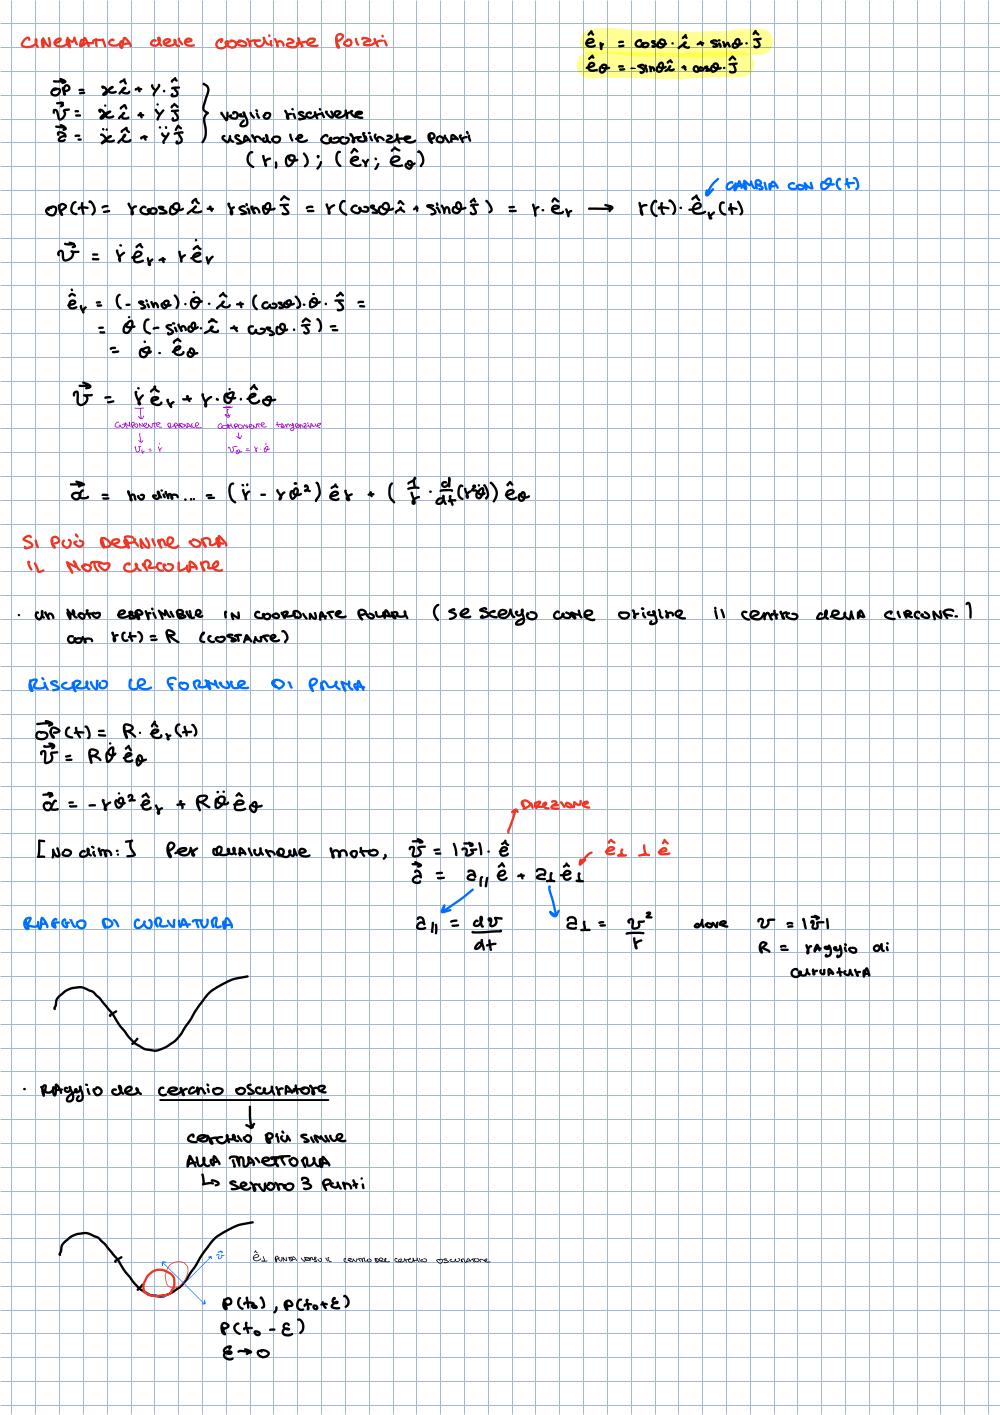 CINEMATICA delle coordinate Polari
ê_r = cosθ · î + sinθ · ĵ
ê_θ = -sinθ î + cosθ · ĵ
OP = x î + y · ĵ
v = ẋ î + ẏ ĵ
a = ẍ î + ÿ ĵ
voglio riscrivere
usando le coordinate polari
(r, θ) ; (ê_r ; ê_θ)
CAMBIA CON θ(t)
OP(t) = r cosθ î + r sinθ ĵ = r (cosθ î + sinθ ĵ) = r · ê_r → r(t) · ê_r(t)
v = ṙ ê_r + r ê̇_r
ê̇_r = (- sinθ) · θ̇ · î + (cosθ) · θ̇ · ĵ =
= θ̇ (- sinθ · î + cosθ · ĵ) =
= θ̇ · ê_θ
v = ṙ ê_r + r · θ̇ · ê_θ
componente radiale componente tangenziale
v_r = ṙ v_θ = r · θ̇
a = no dim... = (r̈ - r θ̇²) ê_r + (1/r · d/dt (r²θ̇)) ê_θ
SI PUÒ DEFINIRE ORA
IL MOTO CIRCOLARE
· un moto esprimibile in coordinate polari (se scelgo come origine il centro della circonf.)
con r(t) = R (costante)
RISCRIVO LE FORMULE DI PRIMA
OP(t) = R · ê_r(t)
v = R θ̇ ê_θ
a = - r θ̇² ê_r + R θ̈ ê_θ
DIREZIONE
[No dim:] Per qualunque moto, v = |v| · ê
ê⊥ ⊥ ê
a = a∥ ê + a⊥ ê⊥
RAGGIO DI CURVATURA
a∥ = dv/dt a⊥ = v²/r dove v = |v|
R = raggio di
curvatura
· Raggio del cerchio oscuratore
↓
cerchio più simile
alla traiettoria
↳ servono 3 punti
v
ê⊥ punta verso il centro del cerchio oscuratore
P(t₀), P(t₀+ε)
P(t₀ - ε)
ε → 0